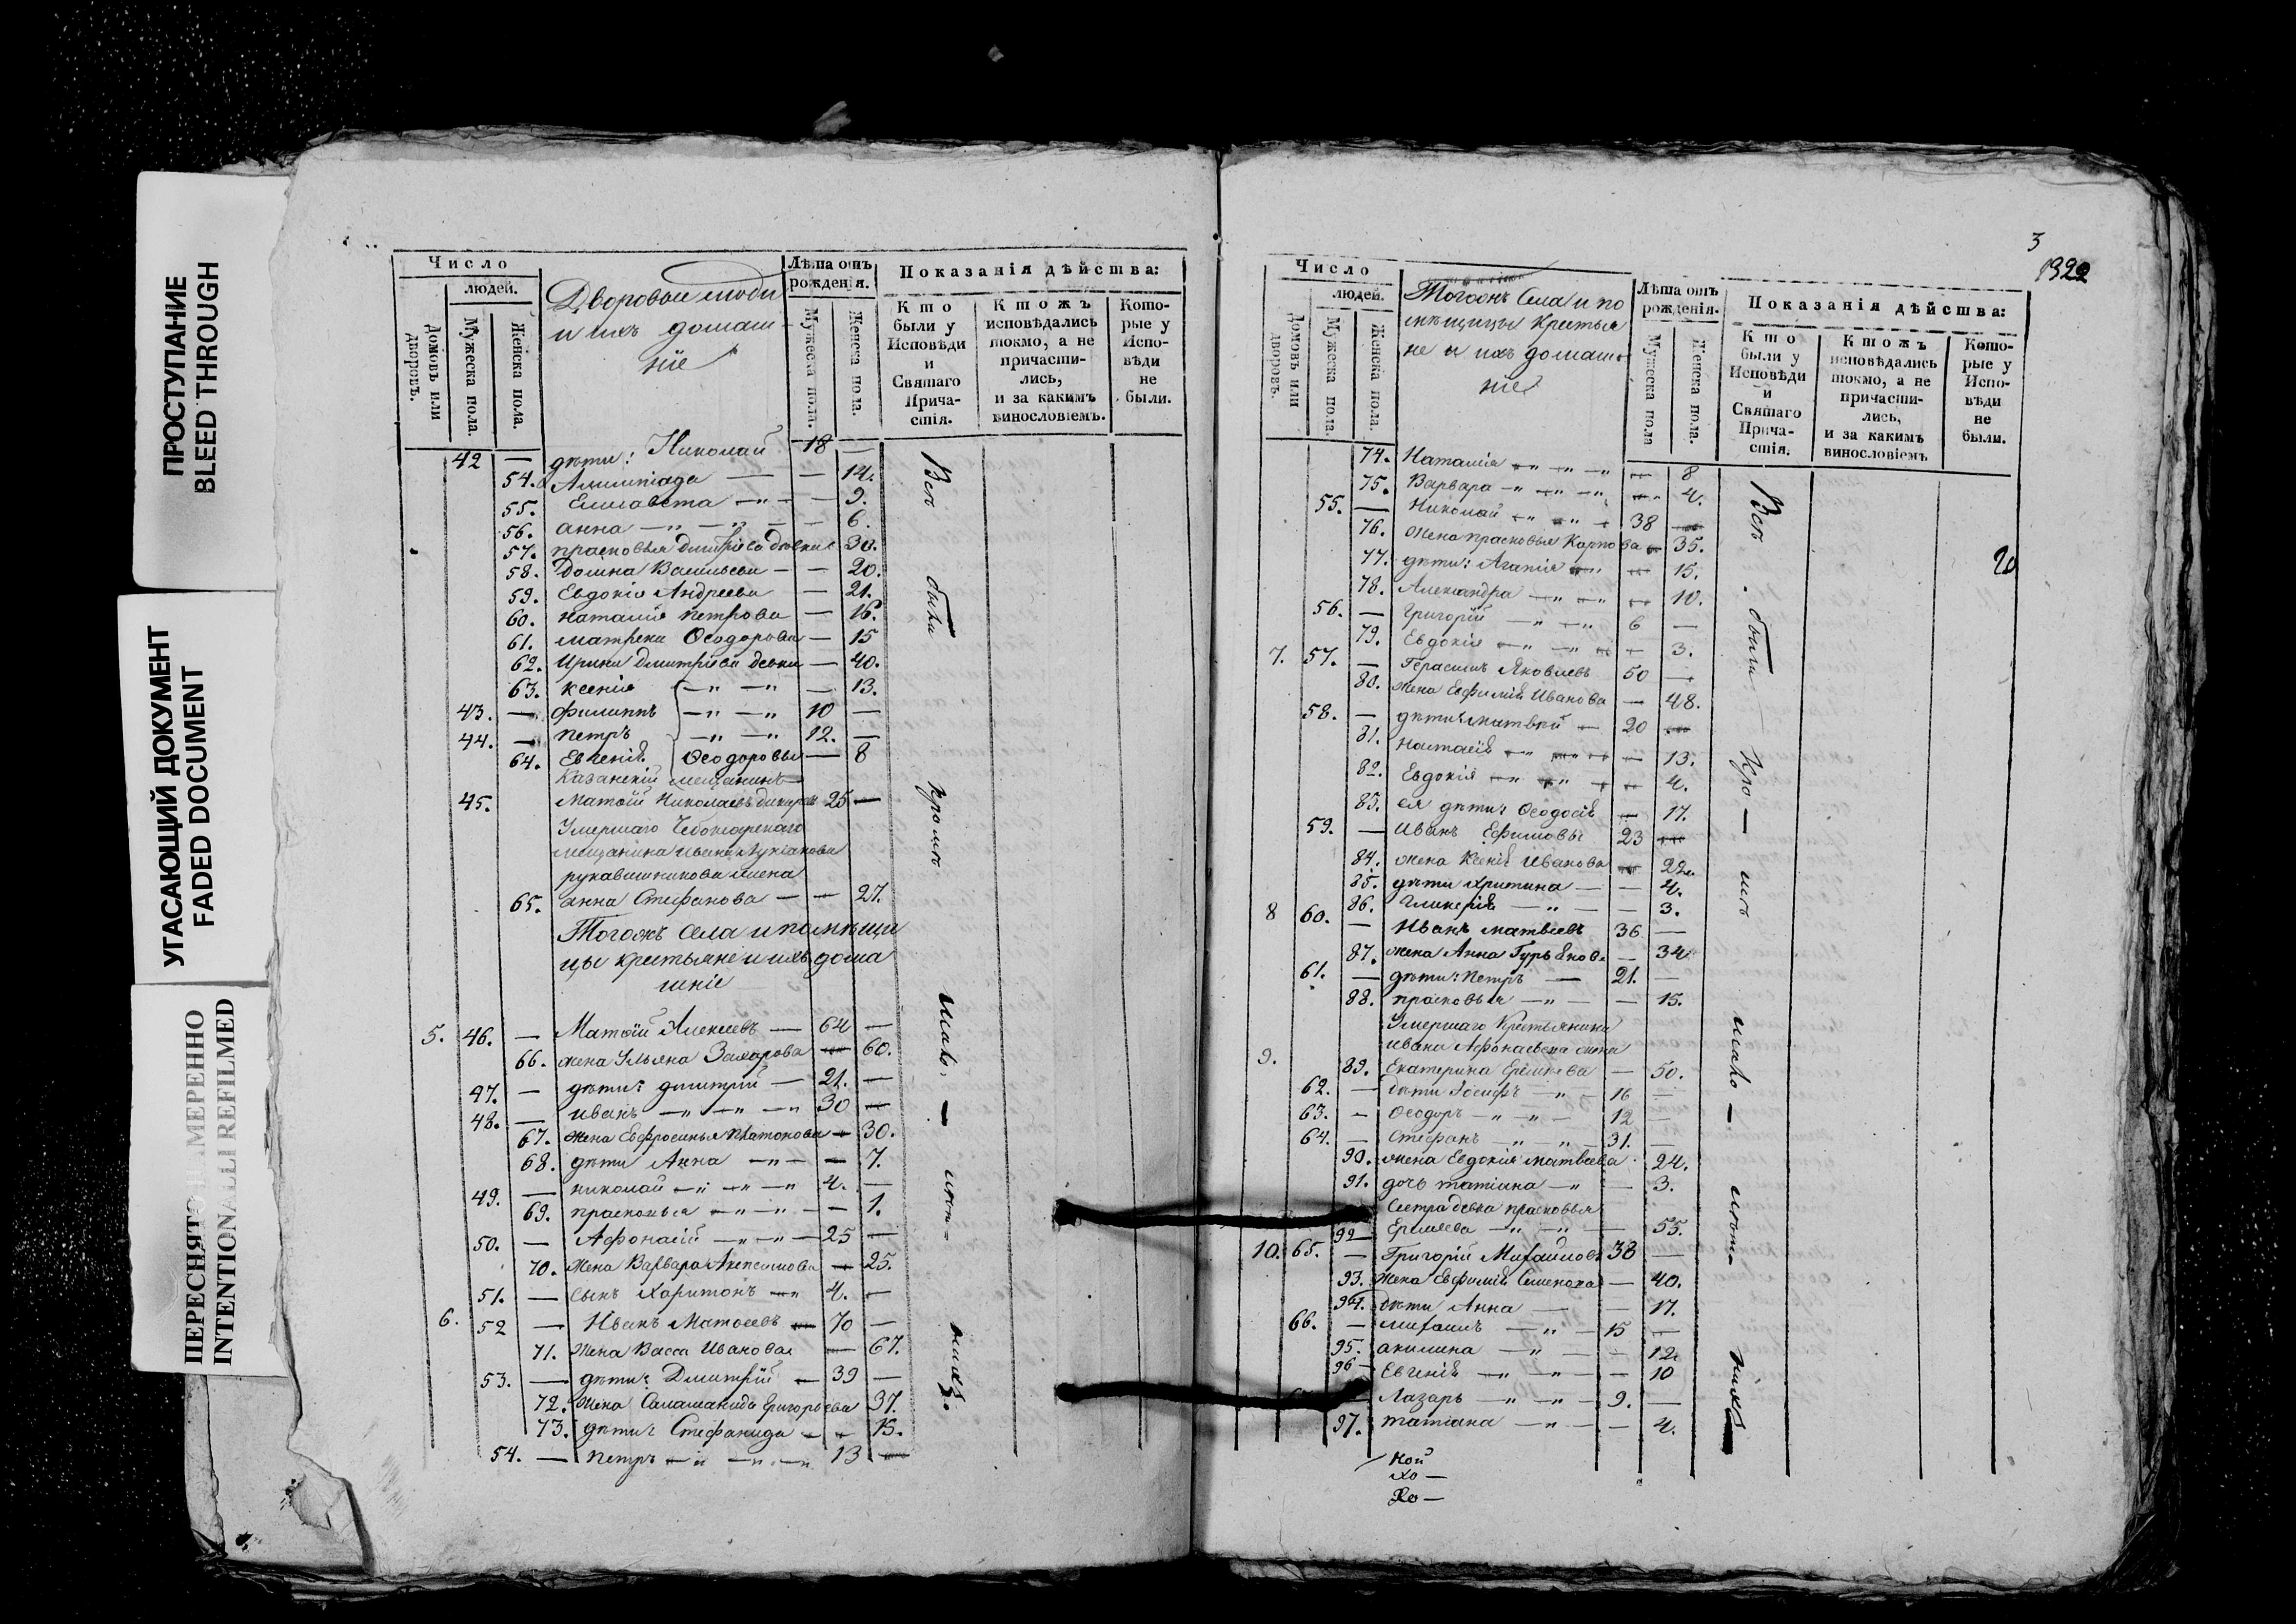 ПРОСТУПАНИЕ
BLEED THROUGH
УГАСАЮЩИЙ ДОКУМЕНТ
FADED DOCUMENT
ПЕРЕСНЯТО МЕРЕННО
INTENTIONALLI REFILMED
Число
людей.
Домовъ или дворовъ.
Мужеска пола.
Женска пола.
Дворовыи люди
и ихъ домаш-
ніе
Лѣта отъ
рожденія.
Мужеска пола.
Женска пола.
Показанія дѣйства:
Кто
были у
Исповѣди
и
Святаго
Прича-
стія.
Ктожъ
исповѣдались
токмо, а не
причасти-
лись,
и за какимъ
винословіемъ.
Кото-
рые у
Испо-
вѣди
не
были.
42 — дѣти: Николай 18 —
54. — 14.
55. Елисавета — 9.
56. анна — 6.
57. прасковья Дмитріева девка 30.
58. Домна Васильева — 20.
59. Евдокія Андреева — 21.
60. наталія петрова — 16.
61. матрена Ѳеодорова — 15
62. Ирина дмитріева девка — 40.
63. ксенія — 13.
43. — филиппъ 10 —
44. — петръ 12. —
64. Евгенія Ѳеодоровы — 8
Казанскій мещанинъ
45. Матѳій Николаевъ 25 —
Умершаго Чебоксарскаго
мещанина Ивана Лукіанова
рукавишникова жена
65. анна Стефанова — 27.
Тогожъ Села и помѣщи
цы крестьяне и ихъ дома
шніе
5. 46. — Матѳій Алексеевъ — 64 —
66. жена Ульяна Захарова — 60.
47. — дѣти: дмитрій — 21. —
48. — иванъ — 30 —
67. жена Евфросинья Платонова — 30.
68. дѣти Анна — 7.
49. — николай — 4. —
69. прасковья — 1.
50. — Афонасій — 25 —
70. Жена Варвара — 25.
51. — Сынъ Харитонъ — 4. —
6. 52 — Иванъ Матѳеевъ — 70 —
71. Жена Васса Иванова — 67.
53. — дѣти: Дмитрій — 39 —
72. Жена Саламанида Григорьева 37.
73. дѣти: Стефанида — 15.
54. — петръ — 13 —
Всѣ были кромѣ
3
1322
Число
людей.
Домовъ или дворовъ.
Мужеска пола.
Женска пола.
Тогожъ Села и по
мѣщицы Крестья
не и ихъ домаш-
ніе
Лѣта отъ
рожденія.
Мужеска пола
Женска пола.
Показанія дѣйства:
Кто
были у
Исповѣди
и
Святаго
Прича-
стія.
Ктожъ
исповѣдались
токмо, а не
причасти-
лись,
и за какимъ
винословіемъ
Кото-
рые у
Испо-
вѣди
не
были.
74. Наталія — 8
75. Варвара — 4.
55. — Николай — 38 —
76. жена прасковья Карпова — 35.
77. дѣти: Агапія — 15.
78. Александра — 10.
56. — Григорій — 6 —
79. Евдокія — 3.
7. 57. — Герасимъ Яковлевъ 50 —
80. жена Евфимія Иванова — 48.
58. — дѣти: матвѣй — 20 —
81. Настасія — 13.
82. Евдокія — 4.
83. ея дѣти: Ѳеодосія — 17.
59. — Иванъ Ефимовы 23 —
84. жена Ксенія Иванова — 22.
85. дѣти христина — 4.
86. Гликерія — 3.
8 60. — Иванъ матвіевъ 36 —
87. жена Анна — 34
61. — дѣти: Петръ — 21. —
88. прасковья — 15.
Умершаго Крестьянина
9. ивана Афонасьева жена
89. Екатерина Еремеева — 50.
62. — дѣти Іосифъ — 16 —
63. — Ѳеодоръ — 12 —
64. — Стефанъ — 31. —
90. жена Евдокія матвеева 24.
91. дочь татіана — 3.
Сестра девка прасковья
92 Еремеева — 55.
10. 65. — Григорій Михайловъ 38 —
93. Жена Евфимія Семенова — 40.
94. дѣти Анна — 17.
66. — михаилъ — 15 —
95. акилина — 12
96 Евгенія — 10
— Лазарь — 9. —
97. татіана — 4.
Всѣ были кро — мѣ
20